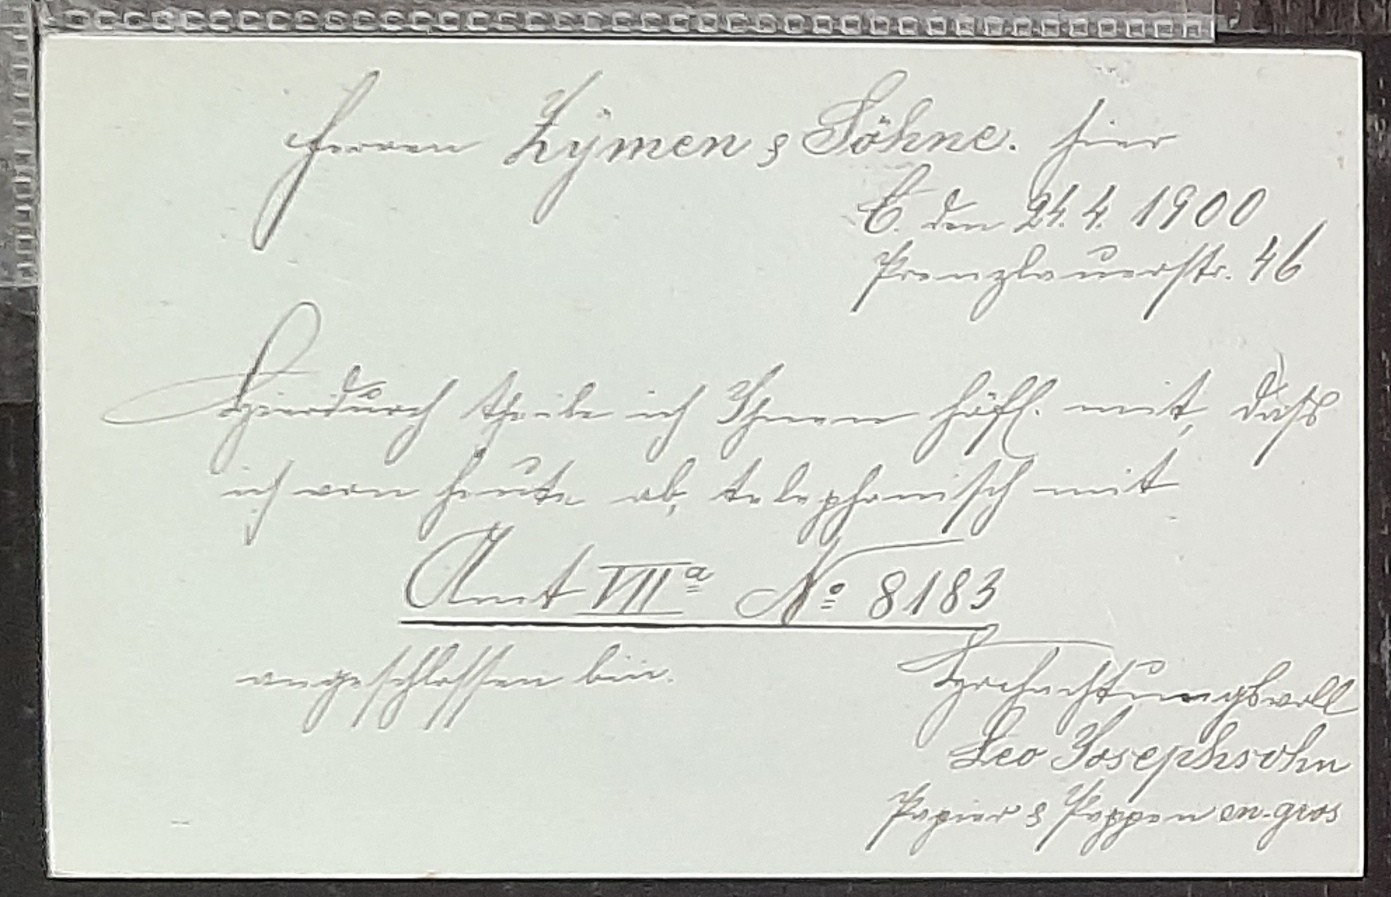 Herren Lymen & Söhne. hier
C. den 24.4.1900
Prenzlauerstr. 46
Hierdurch theile ich Ihnen höfl. mit, daß
ich von heute ab, telephonisch mit
Amt VIIa No 8183
angeschlossen bin.
Hochachtungsvoll
Leo Josephsohn
Papier & Pappen en-gros